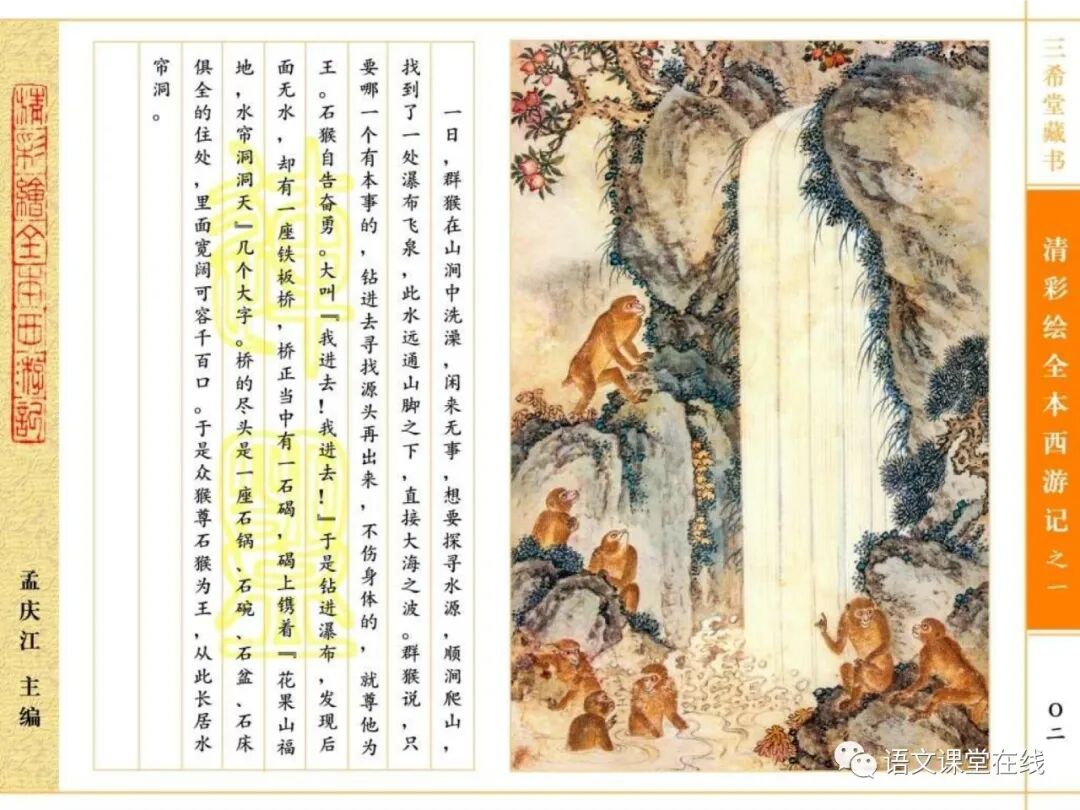 三希堂藏书
清彩绘全本西游记之一
〇二
一日，群猴在山涧中洗澡，闲来无事，想要探寻水源，顺涧爬山，
找到了一处瀑布飞泉，此水远通山脚之下，直接大海之波。群猴说，只
要哪一个有本事的，钻进去寻找源头再出来，不伤身体的，就尊他为
王。石猴自告奋勇。大叫『我进去！我进去！』于是钻进瀑布，发现后
面无水，却有一座铁板桥，桥正当中有一石碣，碣上镌着『花果山福
地，水帘洞洞天』几个大字。桥的尽头是一座石锅、石碗、石盆、石床
俱全的住处，里面宽阔可容千百口。于是众猴尊石猴为王，从此长居水
帘洞。
清彩繪全本西游記
孟庆江 主编
语文课堂在线